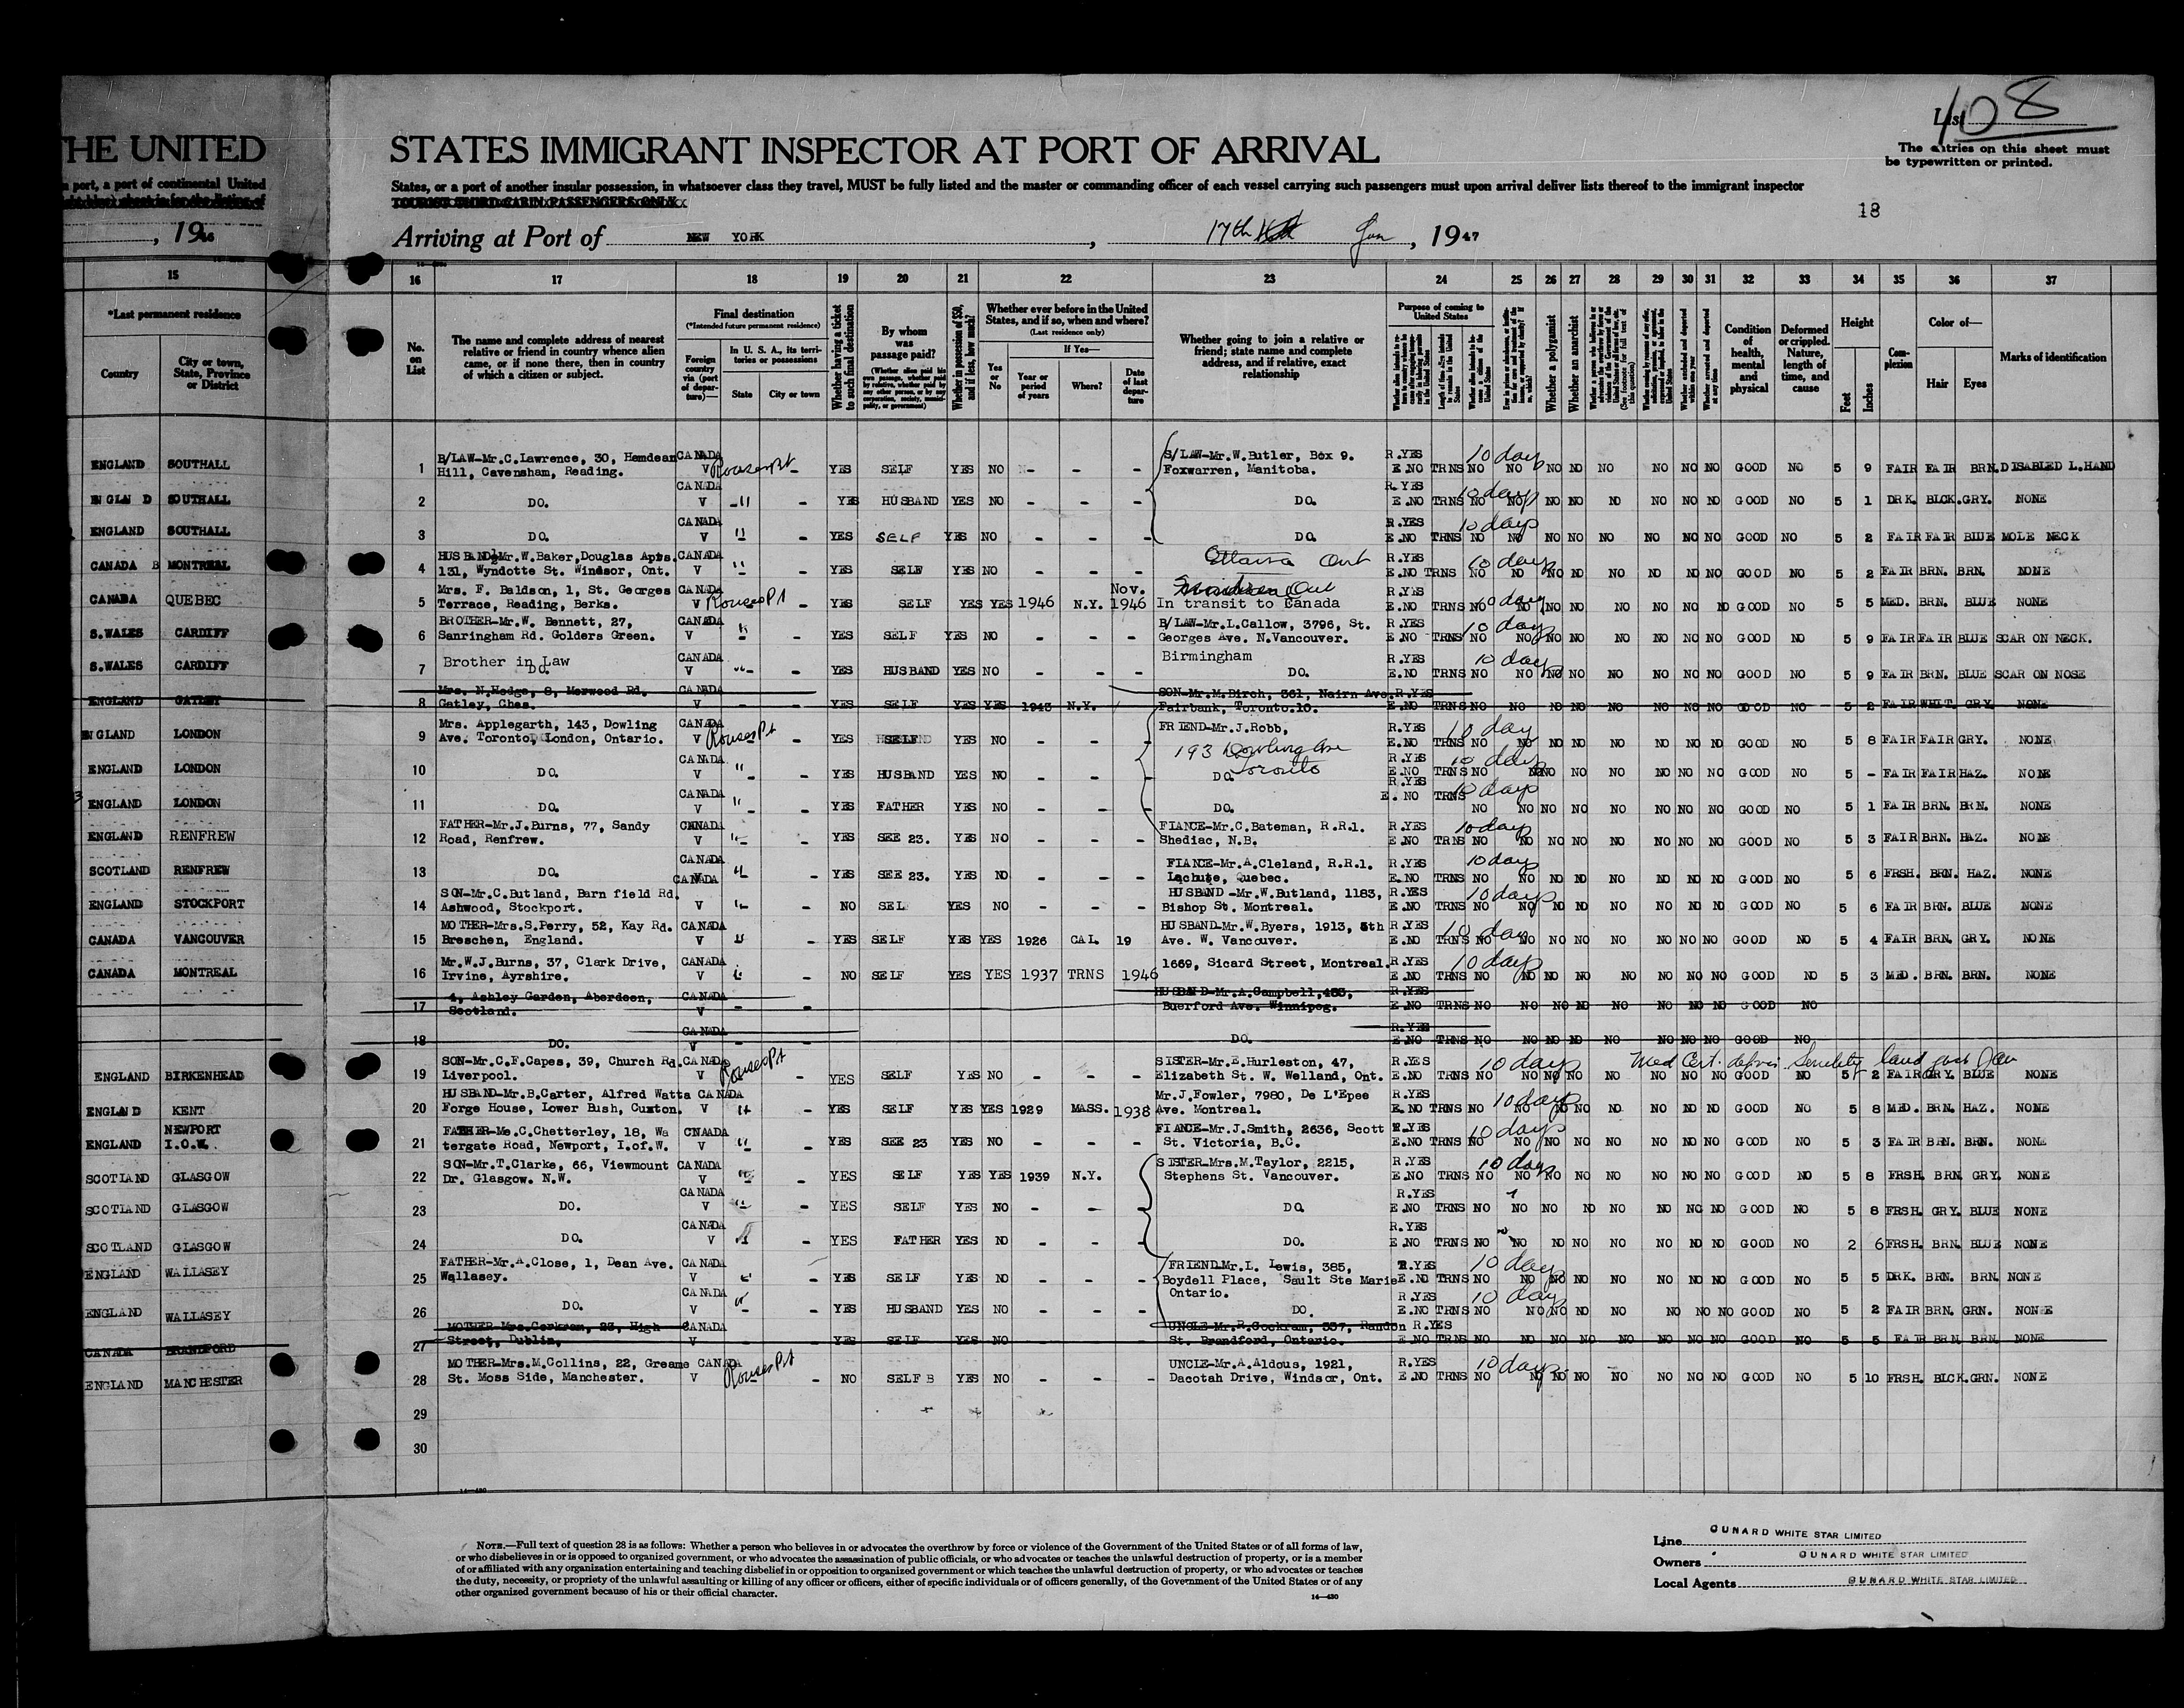 List 108
The entries on this sheet must
be typewritten or printed.
THE UNITED STATES IMMIGRANT INSPECTOR AT PORT OF ARRIVAL
a port, a port of continental United States, or a port of another insular possession, in whatsoever class they travel, MUST be fully listed and the master or commanding officer of each vessel carrying such passengers must upon arrival deliver lists thereof to the immigrant inspector
TOURIST THIRD CABIN PASSENGERS ONLY
18
, 1946 Arriving at Port of NEW YORK , 17th Jan , 1947
15 16 17 18 19 20 21 22 23 24 25 26 27 28 29 30 31 32 33 34 35 36 37
*Last permanent residence
Country
City or town, State, Province or District
No. on List
The name and complete address of nearest relative or friend in country whence alien came, or if none there, then in country of which a citizen or subject.
Final destination
(*Intended future permanent residence)
Foreign country via (port of departure)—
In U. S. A., its territories or possessions
State
City or town
Whether having a ticket to such final destination
By whom was passage paid?
(Whether alien paid his own passage, whether paid by relative, whether paid by any other person, or by any corporation, society, municipality, or government)
Whether in possession of $50, and if less, how much?
Whether ever before in the United States, and if so, when and where?
(Last residence only)
Yes or No
If Yes—
Year or period of years
Where?
Date of last departure
Whether going to join a relative or friend; state name and complete address, and if relative, exact relationship
Purpose of coming to United States
Whether a polygamist
Whether an anarchist
Condition of health, mental and physical
Deformed or crippled. Nature, length of time, and cause
Height
Feet
Inches
Complexion
Color of—
Hair
Eyes
Marks of identification
ENGLAND SOUTHALL 1 B/LAW-Mr.C.Lawrence, 30, Hemdean Hill, Cavensham, Reading. CANADA V Rouses Pt - YES SELF YES NO - - - S/LAW-Mr.W.Butler, Box 9. Foxwarren, Manitoba. R.YES E.NO TRNS 10 days NO NO NO NO NO NO NO NO GOOD NO 5 9 FAIR FAIR BRN. DISABLED L.HAND
ENGLAND SOUTHALL 2 DO. CANADA V -" - YES HUSBAND YES NO - - - DO. R.YES E.NO TRNS 10 days NO NO NO NO NO NO NO NO GOOD NO 5 1 DRK. BLCK. GRY. NONE
ENGLAND SOUTHALL 3 DO. CANADA V " - YES SELF YES NO - - - DO. R.YES E.NO TRNS 10 days NO NO NO NO NO NO NO NO GOOD NO 5 2 FAIR FAIR BLUE MOLE NECK
CANADA MONTREAL 4 HUSBAND-Mr.W.Baker,Douglas Apts. 131, Wyndotte St. Windsor, Ont. CANADA V " - YES SELF YES NO - - - Ottawa Ont R.YES E.NO TRNS 10 days NO NO NO NO NO NO NO NO GOOD NO 5 2 FAIR BRN. BRN. NONE
CANADA QUEBEC 5 Mrs. F. Baldson, 1, St. Georges Terrace, Reading, Berks. CANADA V Rouses Pt - YES SELF YES YES 1946 N.Y. Nov. 1946 In transit to Canada R.YES E.NO TRNS 10 days NO NO NO NO NO NO NO NO GOOD NO 5 5 MED. BRN. BLUE NONE
S.WALES CARDIFF 6 BROTHER-Mr.W. Bennett, 27, Sanringham Rd. Golders Green. CANADA V " - YES SELF YES NO - - - B/LAW-Mr.L.Callow, 3796, St. Georges Ave. N.Vancouver. R.YES E.NO TRNS 10 days NO NO NO NO NO NO NO NO GOOD NO 5 9 FAIR FAIR BLUE SCAR ON NECK.
S.WALES CARDIFF 7 Brother in Law DO. CANADA V " - YES HUSBAND YES NO - - - Birmingham DO. R.YES E.NO TRNS 10 days NO NO NO NO NO NO NO NO GOOD NO 5 9 FAIR BRN. BLUE SCAR ON NOSE
ENGLAND GATLEY 8 Mrs. N.Hodge, 8, Merwood Rd. Gatley, Ches. CANADA V - - YES SELF YES YES 1943 N.Y. SON-Mr.M.Birch, 361, Nairn Ave. Fairbank, Toronto.10. R.YES E.NO TRNS NO NO NO NO NO NO NO NO GOOD NO 5 2 FAIR WHIT. GRY. NONE
ENGLAND LONDON 9 Mrs. Applegarth, 143, Dowling Ave. Toronto, London, Ontario. CANADA V Rouses Pt - YES SELF YES NO - - - FRIEND-Mr.J.Robb, 193 Dowling Ave Toronto R.YES E.NO TRNS 10 days NO NO NO NO NO NO NO NO GOOD NO 5 8 FAIR FAIR GRY. NONE
ENGLAND LONDON 10 DO. CANADA V " - YES HUSBAND YES NO - - - DO. R.YES E.NO TRNS 10 days NO NO NO NO NO NO NO NO GOOD NO 5 - FAIR FAIR HAZ. NONE
ENGLAND LONDON 11 DO. CANADA V " - YES FATHER YES NO - - - DO. R.YES E.NO TRNS 10 days NO NO NO NO NO NO NO NO GOOD NO 5 1 FAIR BRN. BRN. NONE
ENGLAND RENFREW 12 FATHER-Mr.J.Burns, 77, Sandy Road, Renfrew. CANADA V " - YES SEE 23. YES NO - - - FIANCE-Mr.C.Bateman, R.R.1. Shediac, N.B. R.YES E.NO TRNS 10 days NO NO NO NO NO NO NO NO GOOD NO 5 3 FAIR BRN. HAZ. NONE
SCOTLAND RENFREW 13 DO. CANADA V " - YES SEE 23. YES NO - - - FIANCE-Mr.A.Cleland, R.R.1. Lachute, Quebec. R.YES E.NO TRNS 10 days NO NO NO NO NO NO NO NO GOOD NO 5 6 FRSH. BRN. HAZ. NONE
ENGLAND STOCKPORT 14 SON-Mr.C.Butland, Barn field Rd. Ashwood, Stockport. CANADA V " - NO SEL YES NO - - - HUSBAND-Mr.W.Butland, 1183, Bishop St. Montreal. R.YES E.NO TRNS 10 days NO NO NO NO NO NO NO NO GOOD NO 5 6 FAIR BRN. BLUE NONE
CANADA VANCOUVER 15 MOTHER-Mrs.S.Perry, 52, Kay Rd. Breschen, England. CANADA V " - YES SELF YES YES 1926 CAL. 19 HUSBAND-Mr.W.Byers, 1913, 5th Ave. W. Vancouver. R.YES E.NO TRNS 10 days NO NO NO NO NO NO NO NO GOOD NO 5 4 FAIR BRN. GRY. NONE
CANADA MONTREAL 16 Mr.W.J.Burns, 37, Clark Drive, Irvine, Ayrshire. CANADA V " - NO SELF YES YES 1937 TRNS 1946 1669, Sicard Street, Montreal. R.YES E.NO TRNS 10 days NO NO NO NO NO NO NO NO GOOD NO 5 3 MED. BRN. BRN. NONE
17 4, Ashley Garden, Aberdeen, Scotland. CANADA V - - HUSBAND-Mr.A.Campbell,433, Buerford Ave. Winnipeg. R.YES E.NO TRNS NO NO NO NO NO NO NO NO GOOD NO
18 DO. CANADA V - - DO. R.YES E.NO TRNS NO NO NO NO NO NO NO NO GOOD NO
ENGLAND BIRKENHEAD 19 SON-Mr.C.F.Capes, 39, Church Rd. Liverpool. CANADA V Rouses Pt - YES SELF YES NO - - - SISTER-Mr.E.Hurleston, 47, Elizabeth St. W. Welland, Ont. R.YES E.NO TRNS 10 days Med Cert. Senility NO NO NO NO NO NO NO NO GOOD NO 5 2 FAIR GRY. BLUE NONE
ENGLAND KENT 20 HUSBAND-Mr.B.Carter, Alfred Watts Forge House, Lower Bush, Cuxton. CANADA V " - YES SELF YES YES 1929 MASS. 1938 Mr.J.Fowler, 7980, De L'Epee Ave. Montreal. R.YES E.NO TRNS 10 days NO NO NO NO NO NO NO NO GOOD NO 5 8 MED. BRN. HAZ. NONE
ENGLAND NEWPORT I.O.W. 21 FATHER-Me.C.Chetterley, 18, Wa tergate Road, Newport, I.of.W. CNAADA V " - YES SEE 23 YES NO - - - FIANCE-Mr.J.Smith, 2636, Scott St. Victoria, B.C. R.YES E.NO TRNS 10 days NO NO NO NO NO NO NO NO GOOD NO 5 3 FAIR BRN. BRN. NONE
SCOTLAND GLASGOW 22 SON-Mr.T.Clarke, 66, Viewmount Dr. Glasgow. N.W. CANADA V " - YES SELF YES YES 1939 N.Y. SISTER-Mrs.M.Taylor, 2215, Stephens St. Vancouver. R.YES E.NO TRNS 10 days NO NO NO NO NO NO NO NO GOOD NO 5 8 FRSH. BRN. GRY. NONE
SCOTLAND GLASGOW 23 DO. CANADA V " - YES SELF YES NO - - - DO. R.YES E.NO TRNS NO NO NO NO NO NO NO NO GOOD NO 5 8 FRSH. GRY. BLUE NONE
SCOTLAND GLASGOW 24 DO. CANADA V " - YES FATHER YES NO - - - DO. R.YES E.NO TRNS NO NO NO NO NO NO NO NO GOOD NO 2 6 FRSH. BRN. BLUE NONE
ENGLAND WALLASEY 25 FATHER-Mr.A.Close, 1, Dean Ave. Wallasey. CANADA V " - YES SELF YES NO - - - FRIEND-Mr.L. Lewis, 385, Boydell Place, Sault Ste Marie Ontario. R.YES E.NO TRNS 10 days NO NO NO NO NO NO NO NO GOOD NO 5 5 DRK. BRN. BRN. NONE
ENGLAND WALLASEY 26 DO. CANADA V " - YES HUSBAND YES NO - - - DO. R.YES E.NO TRNS 10 days NO NO NO NO NO NO NO NO GOOD NO 5 2 FAIR BRN. GRN. NONE
CANADA BRANDFORD 27 MOTHER-Mrs.Corkram, 23, High Street, Dublin, CANADA V - - YES SELF YES NO - - - UNCLE-Mr.R.Cockram, 337, Randon St. Brandford, Ontario. R.YES E.NO TRNS NO NO NO NO NO NO NO NO GOOD NO 5 5 FAIR BRN. BRN. NONE
ENGLAND MANCHESTER 28 MOTHER-Mrs.M.Collins, 22, Greame St. Moss Side, Manchester. CANADA V Rouses Pt - NO SELF B YES NO - - - UNCLE-Mr.A.Aldous, 1921, Dacotah Drive, Windsor, Ont. R.YES E.NO TRNS 10 days NO NO NO NO NO NO NO NO GOOD NO 5 10 FRSH. BLCK. GRN. NONE
29
30
14—430
NOTE.—Full text of question 28 is as follows: Whether a person who believes in or advocates the overthrow by force or violence of the Government of the United States or of all forms of law,
or who disbelieves in or is opposed to organized government, or who advocates the assassination of public officials, or who advocates or teaches the unlawful destruction of property, or is a member
of or affiliated with any organization entertaining and teaching disbelief in or opposition to organized government or which teaches the unlawful destruction of property, or who advocates or teaches
the duty, necessity, or propriety of the unlawful assaulting or killing of any officer or officers, either of specific individuals or of officers generally, of the Government of the United States or of any
other organized government because of his or their official character.
14—430
Line CUNARD WHITE STAR LIMITED
Owners CUNARD WHITE STAR LIMITED
Local Agents CUNARD WHITE STAR LIMITED